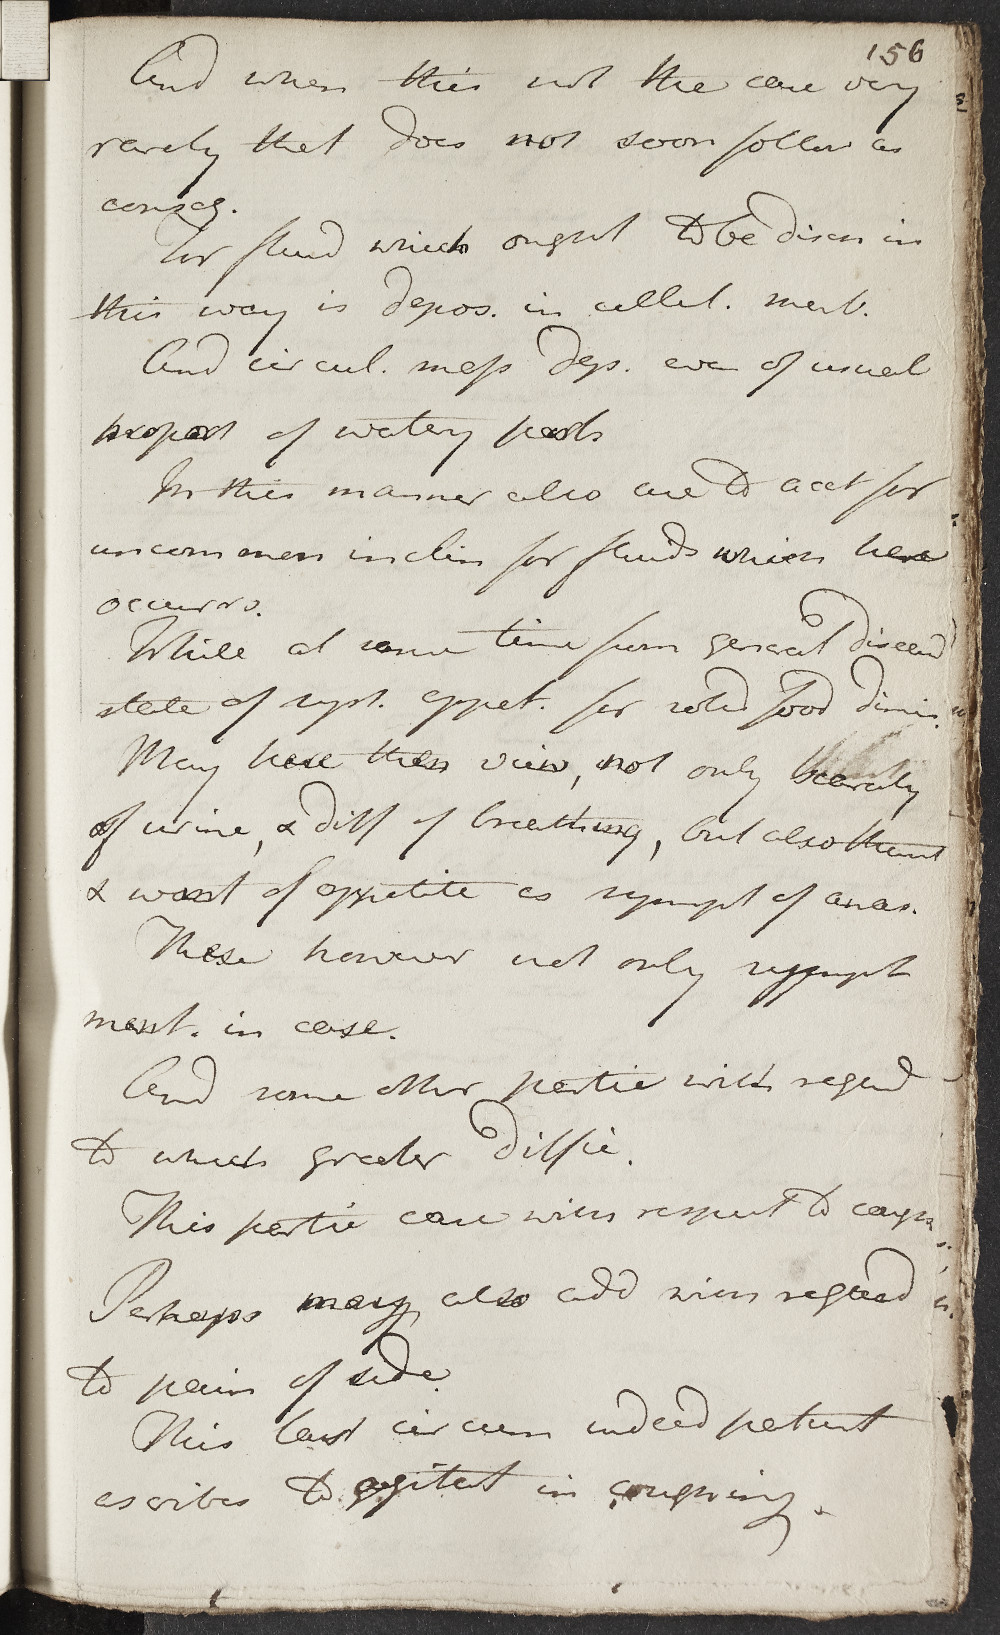 156
And when this not the case very
rarely that does not soon follow as
conseq.
For fluid which ought to be disch in
this way is depos. in cellul. memb.
And circul. mass dep. even of usual
proport of watery parts
In this manner also are to acct for
uncommon inclin for fluids which here
occurrs.
While at same time from general diseasd
state of syst. appet. for solid food dimin.
May here then view, not only scarcity
of urine, & diff of breathing, but also thirst
& want of appetite as sympt of anas.
These however not only sympt
ment. in case.
And some other partic with regard
to which greater diffic.
This partic case with respect to cough
Perhaps may also add with regard
to pain of side.
This last circum indeed patient
ascribes to agitat in coughing.